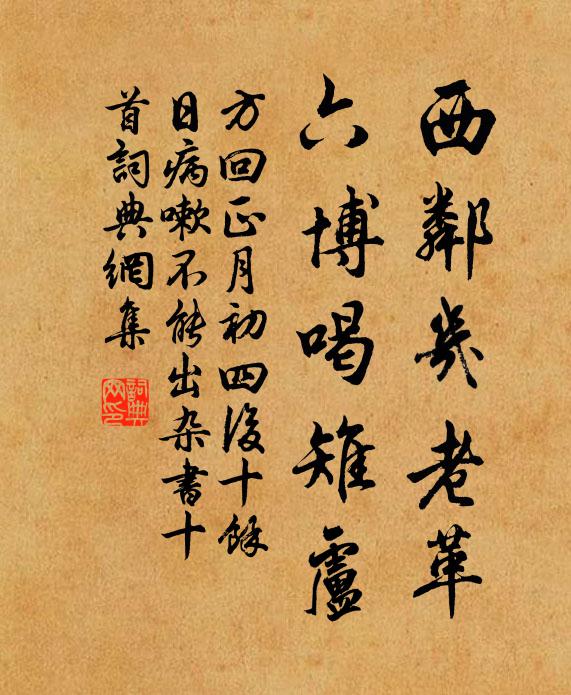 西鄰幾老革
六博喝雉盧
方回正月初四後十餘
日病嗽不能出杂書十
首詞典網集
詞典网印